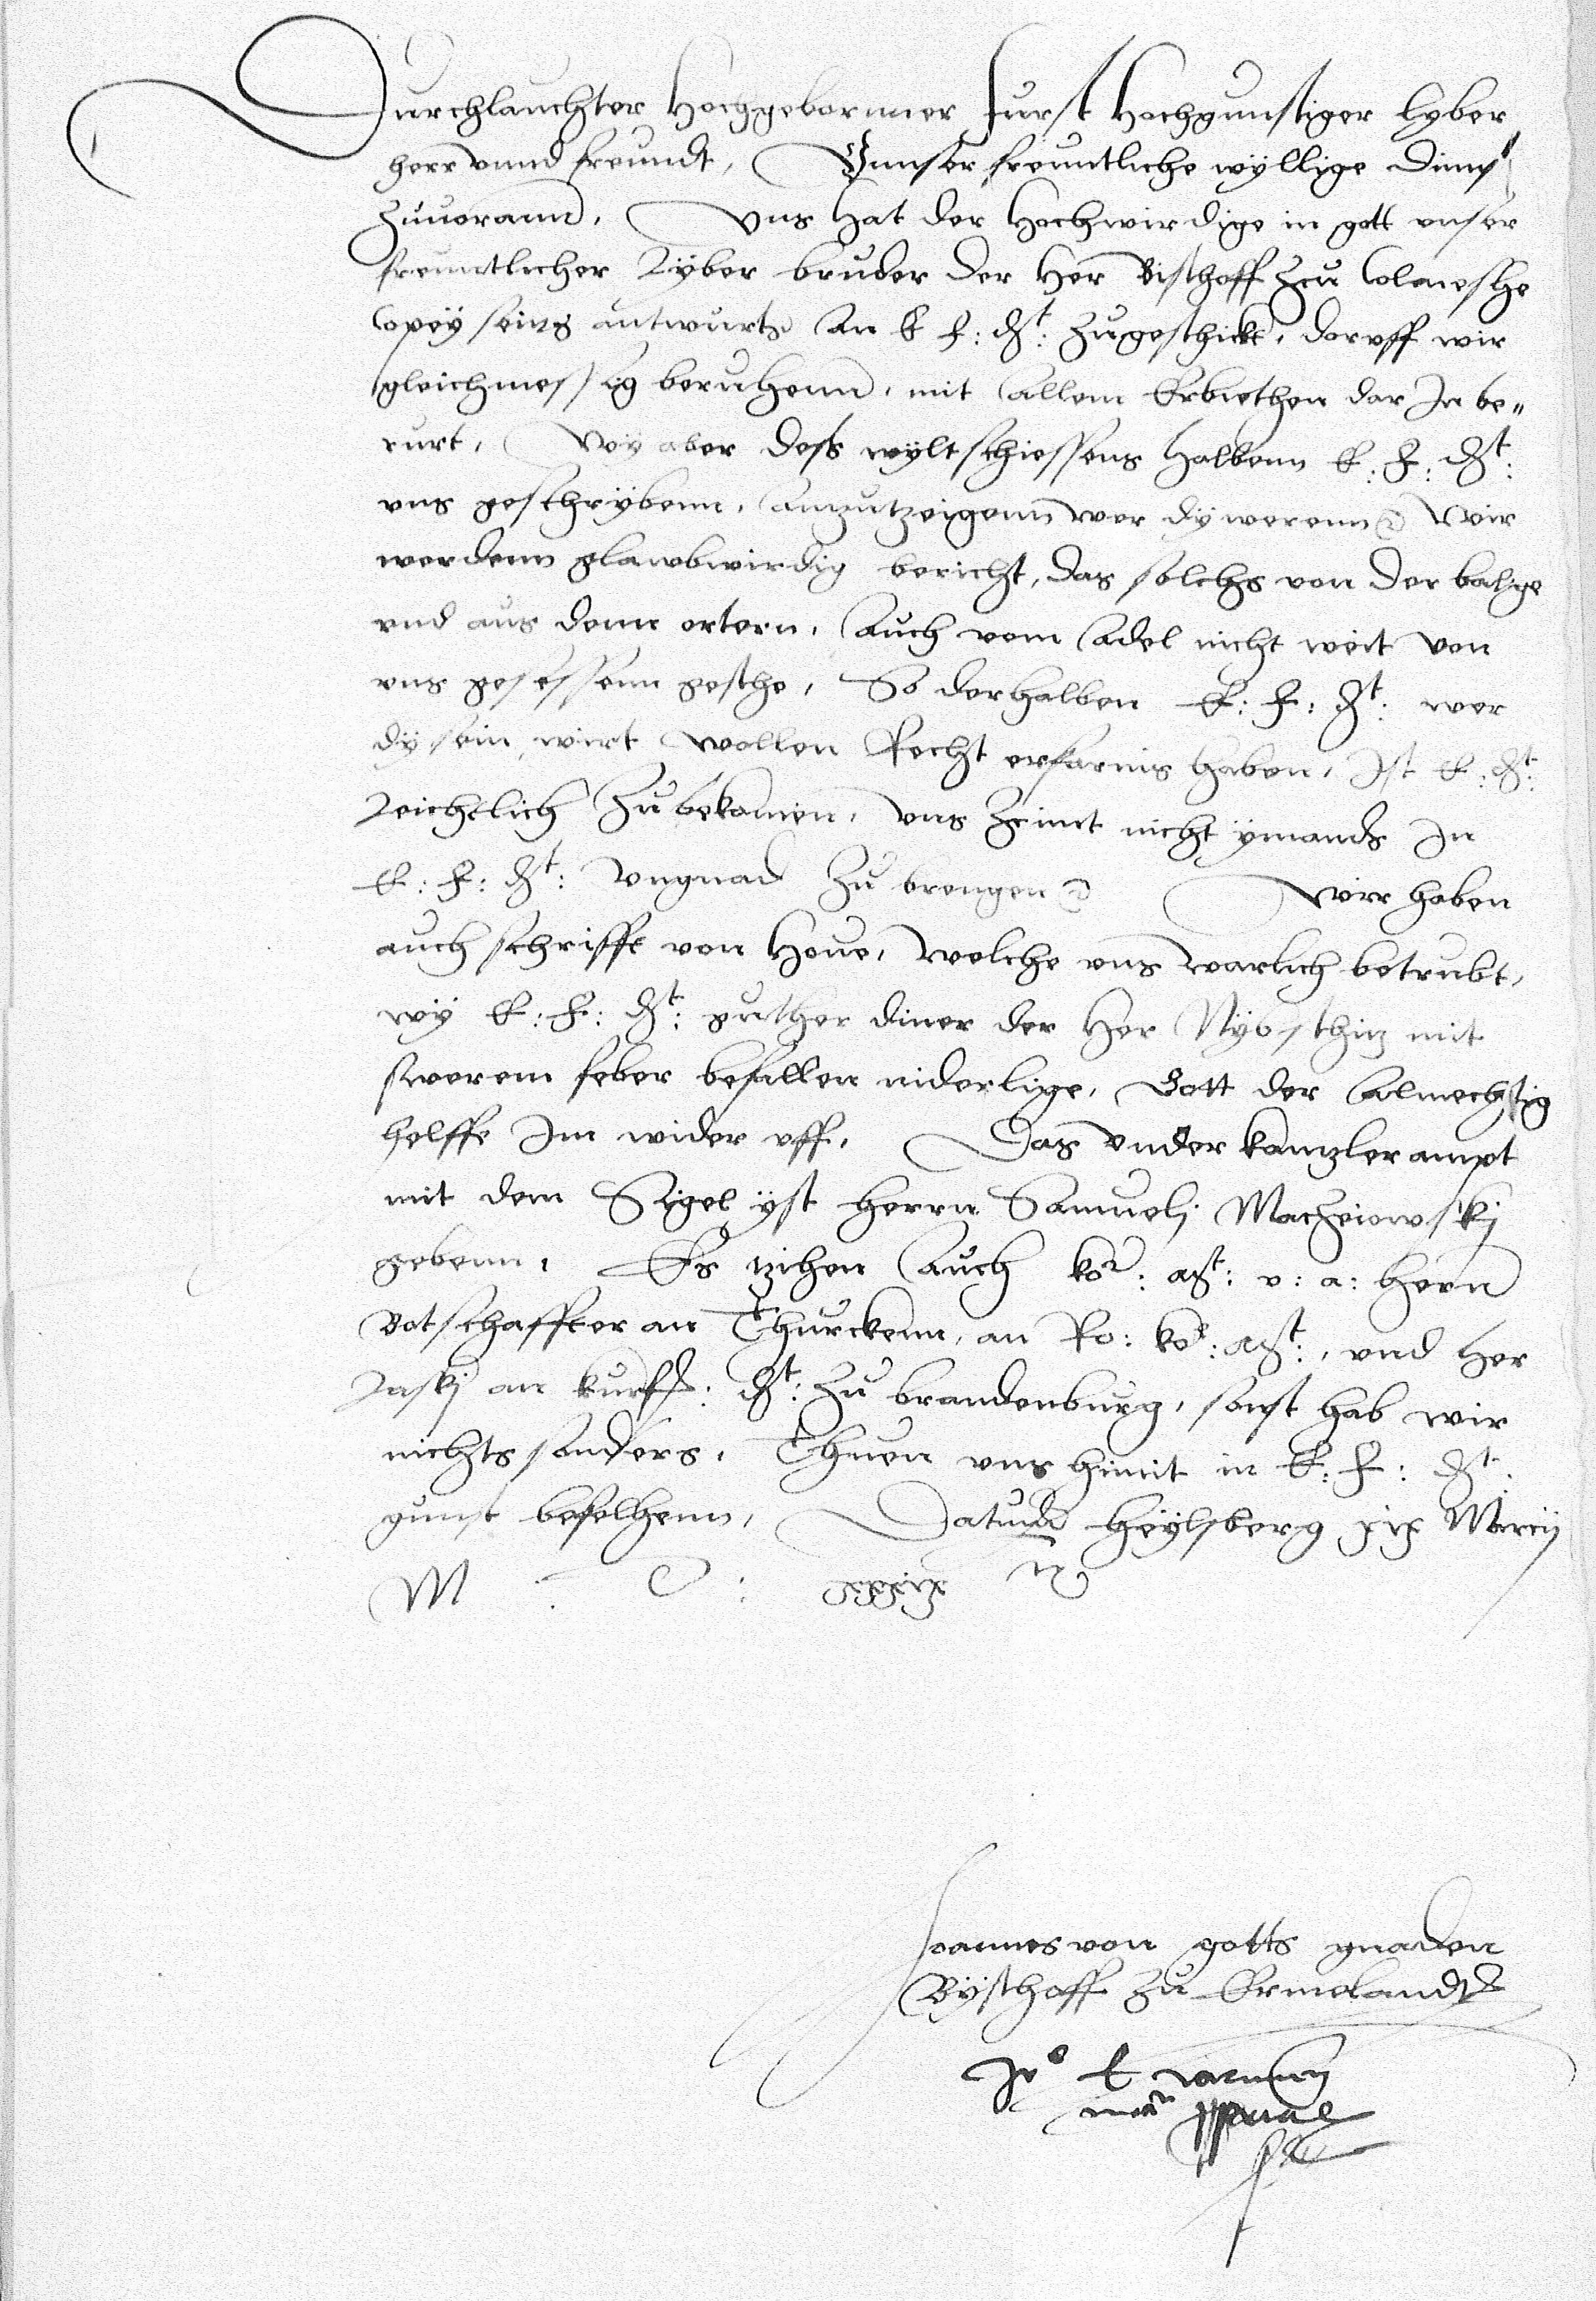 Durchlauchter Hochgebornner Furst Hochgunstiger lyber
herr vnnd freundt, Vnnser freuntliche wyllige dinst
zuuorann. Vns hat der Hochwirdige in gott vnser
freuntlicher Lyber bruder der Her Bischoff zcu Colmeszhe
Copey seins antwurts an E F: Dt: zugeschickt, doruff wir
gleichmessig beruhenn, mit allem Erbiethen dar In be-
rurt, Wy aber dess wyltschiessens halbenn E: F: Dt:
vns geschrybenn, anzutzeigenn wer dy werenn etc Wir
werdenn glawbwirdig bericht, das solchs von der balge
vnd aus denn ortern, Auch vom Adel nicht weit von
vns gesessenn geschee, So derhalben E: F: Dt: wer
dy sein, wirt wollen Recht erfarnis haben, Ist E: Dt:
Leichtlich zu bekomen, vns zcimt nicht ymands In
E: F: Dt: vngnad zu brengen etc Wir haben
auch schrifft von Houe, welche vns warlich betrubt,
wy E: F: Dt: guther diner der Her Nybschitz mit
swerem feber befallen niderlige, Gott der Almechtig
helffe Im wider vff, Das vnder kanzler ampt
mit dem Sigel yst Herrn Samueli Maczeiowskj
gebenn, Es zihen Auch kor: Mt: v: a: hern
Botschaffter an Thurckenn, an Ro: kor: Mt:, vnd Her
Laskj an kurf: Dt: zu brandenburg, sonst hab wir
nichts sonders, Thuen vns himit in E: F: Dt:
gunst befelhenn, Datum Heylsberg xix Marcij
M : D : xxxix
Joannes von gotts gnaden
Byschoff zu Ermelandt
Jo E Varmien
man ppria
sst